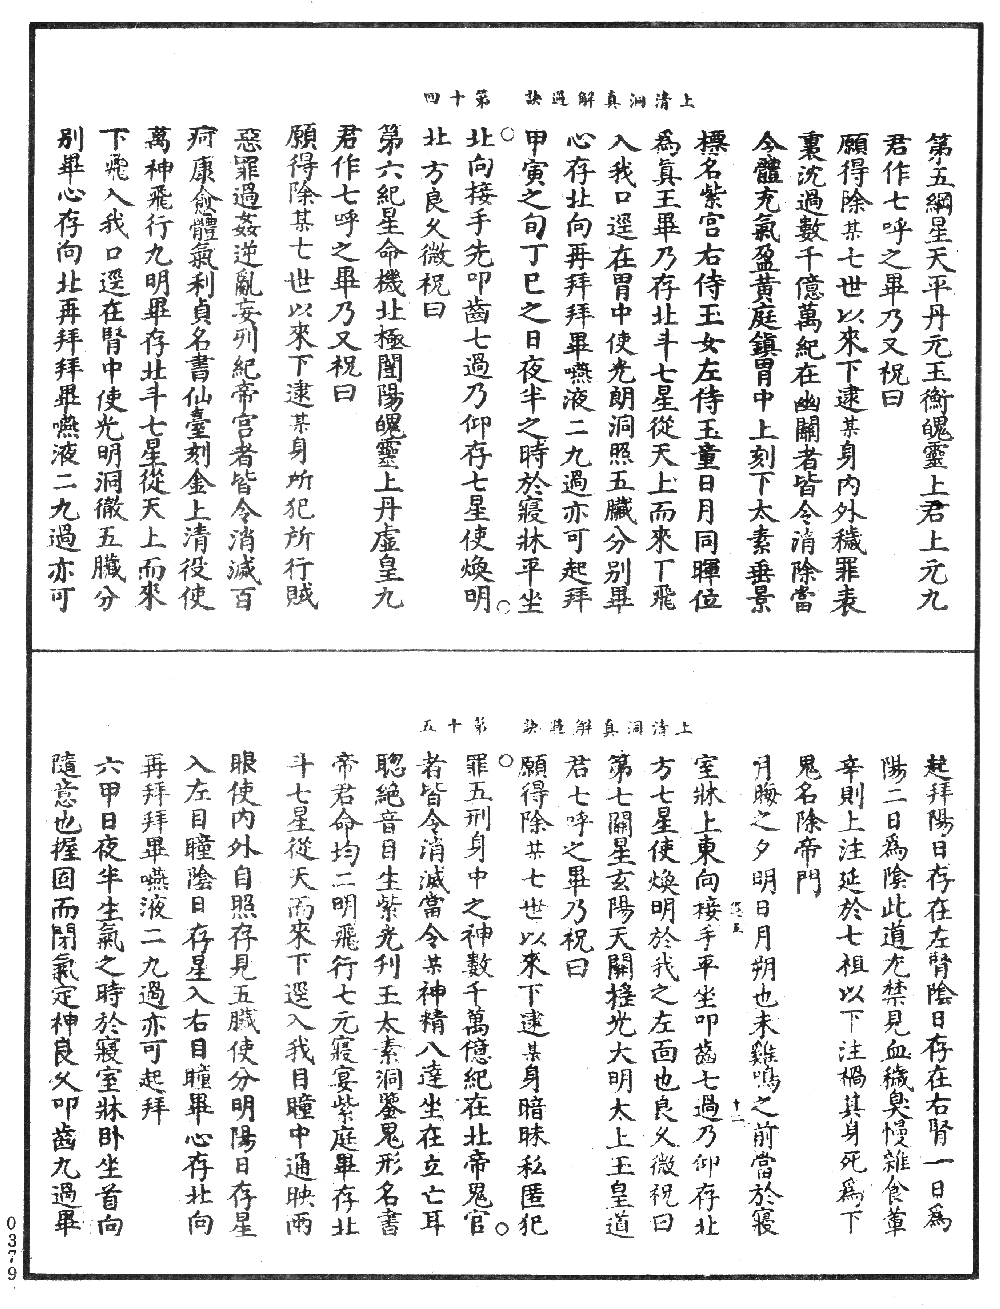 上清洞真解過訣　第十四
第五綱星天平丹元玉衡魄靈上君上元九
君作七呼之畢乃又祝曰
願得除某七世以來下逮某身內外穢罪表
裏沈過數千億萬紀在幽關者皆令消除當
令體充氣盈黃庭鎮胃中上刻下太素垂景
標名紫宮右侍玉女左侍玉童日月同暉位
為真王畢乃存北斗七星從天上而來下飛
入我口逕在胃中使光朗洞照五臟分別畢
心存北向再拜拜畢嚥液二九過亦可起拜
甲寅之旬丁巳之日夜半之時於寢牀平坐
北向接手先叩齒七過乃仰存七星使煥明
北方良久微祝曰
第六紀星命機北極闓陽魄靈上丹虛皇九
君作七呼之畢乃又祝曰
願得除某七世以來下逮某身所犯所行賊
惡罪過姦逆亂妄刋紀帝宮者皆令消滅百
疴康愈體氣利貞名書仙臺刻金上清役使
萬神飛行九明畢存北斗七星從天上而來
下飛入我口逕在腎中使光明洞徹五臟分
別畢心存向北再拜拜畢嚥液二九過亦可
上清洞真解過訣　第十五
起拜陽日存在左腎陰日存在右腎一日為
陽二日為陰此道尤禁見血穢臭慢雜食葷
辛則上注延於七祖以下注禍其身死為下
鬼名除帝門
月晦之夕明日月朔也未雞鳴之前當於寢
室牀上東向接手平坐叩齒七過乃仰存北
方七星使煥明於我之左面也良久微祝曰
第七關星玄陽天關搖光大明太上玉皇道
君七呼之畢乃祝曰
願得除某七世以來下逮某身暗昧私匿犯
罪五刑身中之神數千萬億紀在北帝鬼官
者皆令消滅當令某神精八達坐在立亡耳
聰絕音目生紫光刋王太素洞鑒鬼形名書
帝君命均二明飛行七元寢宴紫庭畢存北
斗七星從天而來下逕入我目瞳中通映兩
眼使內外自照存見五臟使分明陽日存星
入左目瞳陰日存星入右目瞳畢心存北向
再拜拜畢嚥液二九過亦可起拜
六甲日夜半生氣之時於寢室牀卧坐首向
隨意也握固而閉氣定神良久叩齒九過畢
0379